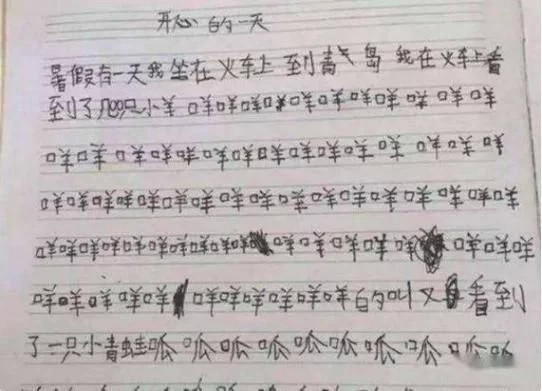 开心的一天
暑假有一天我坐在火车上到青气岛 我在火车上看
到了几100只小羊 咩咩咩咩咩咩咩咩咩咩咩咩咩
咩咩咩咩咩咩咩咩咩咩咩咩咩咩咩咩咩咩
咩咩咩咩咩咩咩咩咩咩咩咩咩咩咩咩咩咩咩咩
咩咩咩咩咩咩咩咩咩咩咩咩咩咩咩咩咩咩咩
咩咩咩咩咩咩咩咩咩咩咩咩的叫又看到
了一只小青蛙呱呱呱呱呱呱呱呱呱